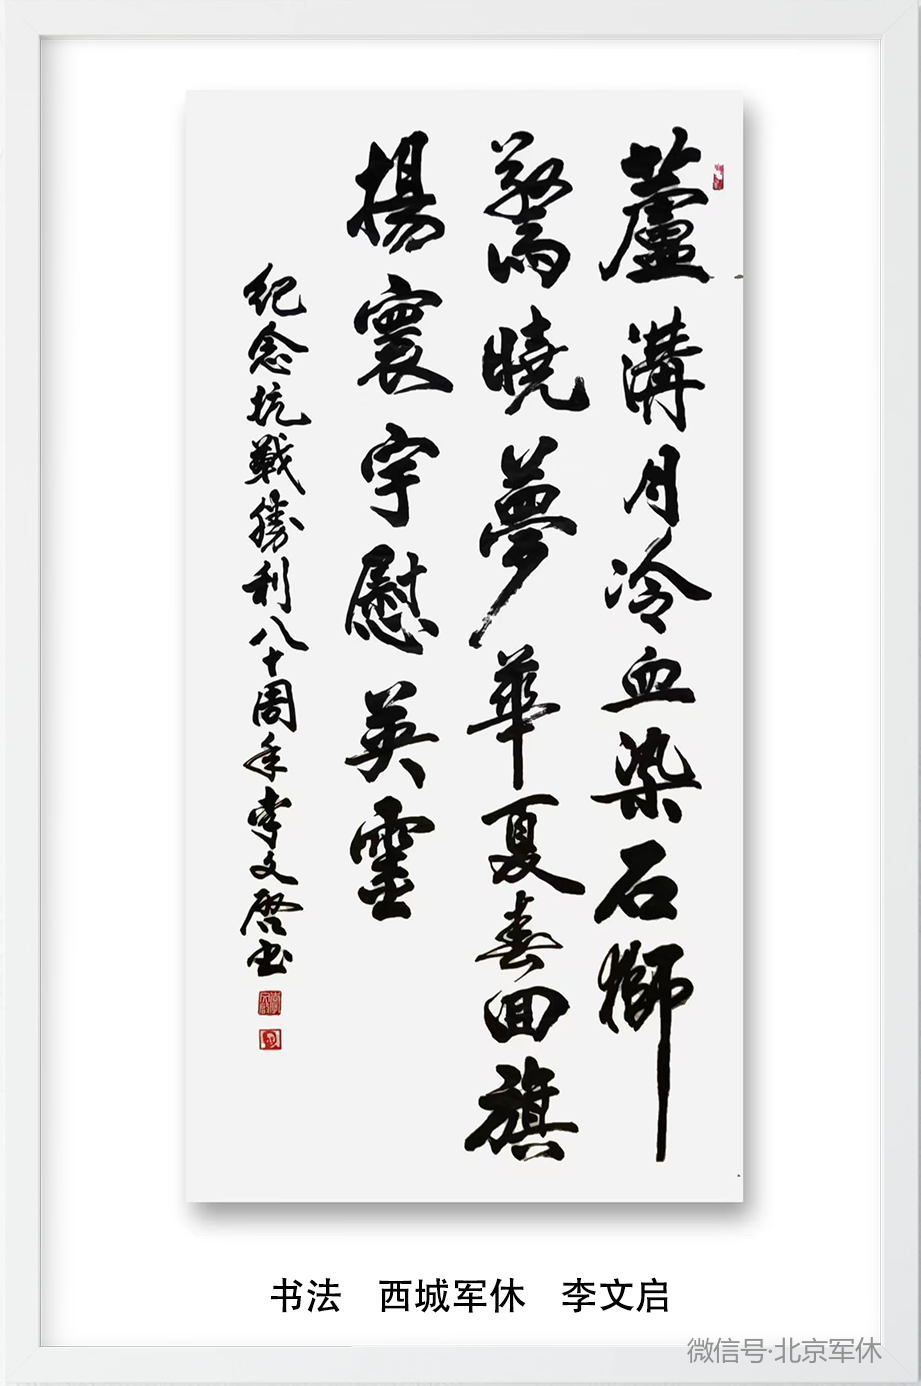 蘆溝月冷血染石獅
驚曉夢華夏春回旗
揚寰宇慰英靈
紀念抗戰勝利八十周年李文啟书
书法　西城军休　李文启
微信号·北京军休